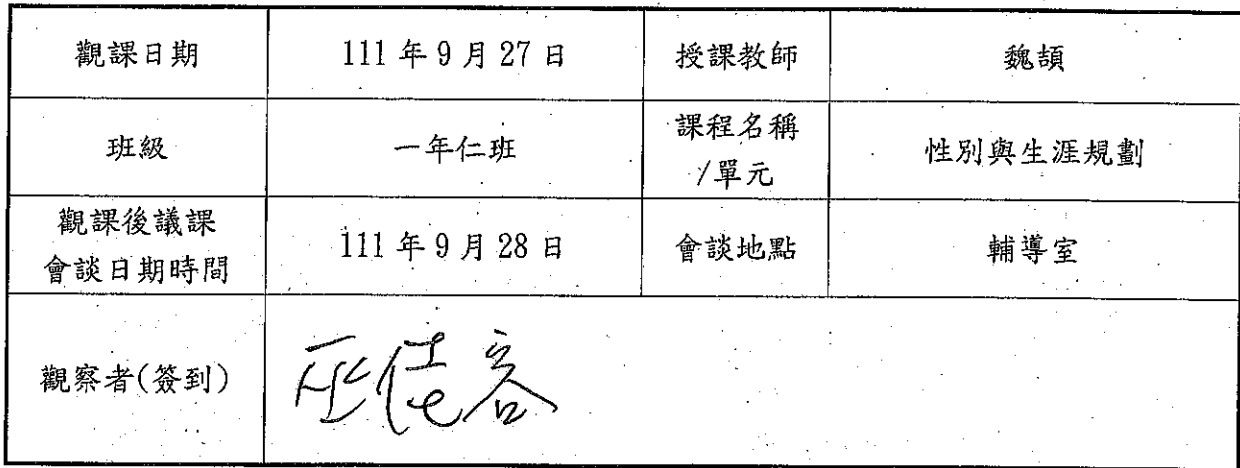 觀課日期 111年9月27日 授課教師 魏頡
班級 一年仁班 課程名稱
/單元 性別與生涯規劃
觀課後議課
會談日期時間 111年9月28日 會談地點 輔導室
觀察者(簽到)